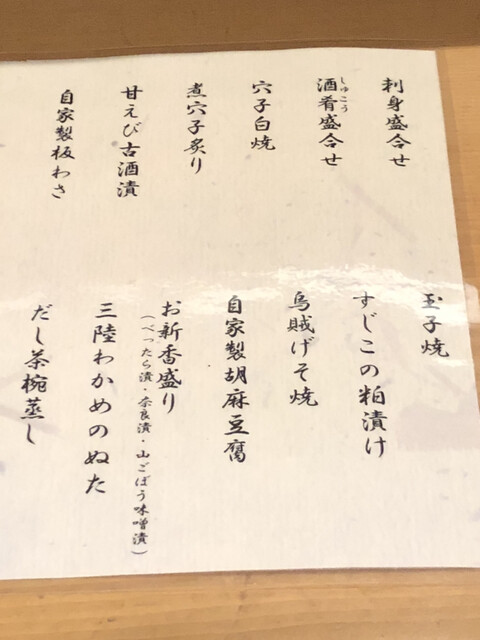 刺身盛合せ
酒肴盛合せ
しゅこう
穴子白焼
煮穴子炙り
甘えび古酒漬
自家製板わさ
玉子焼
すじこの粕漬け
烏賊げそ焼
自家製胡麻豆腐
お新香盛り
(べったら漬・奈良漬・山ごぼう味噌漬)
三陸わかめのぬた
だし茶椀蒸し